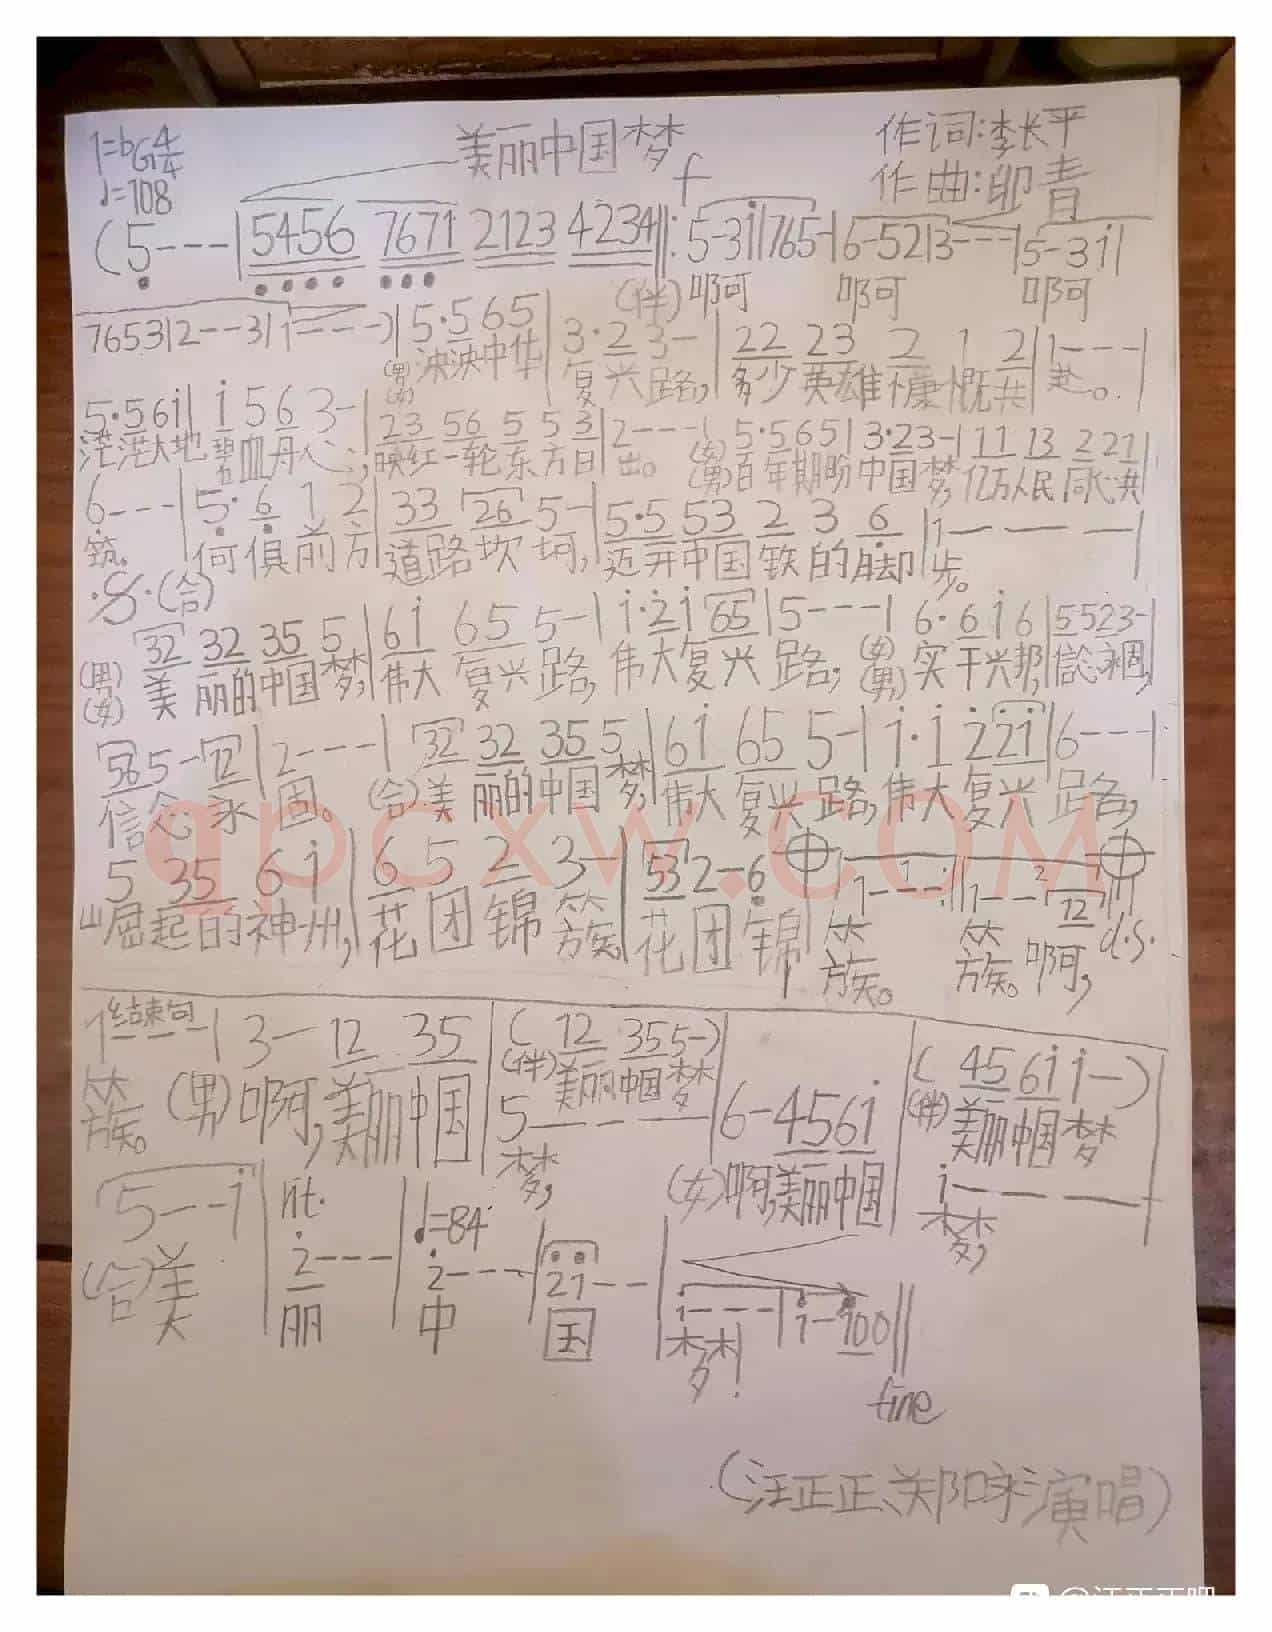 1=bG 4/4
♩=108
美丽中国梦
作词:李长平
作曲:印青
f
(5---|5456 7671 2123 4234‖:5-3i|765-|6-52|3---|5-3i|
(伴)啊 啊 啊
7653|2--3|1---)|5·565|3·23-|22 23 2 1 2|1---|
(男)(女)泱泱中华 复兴路,多少英雄慷慨共赴。
5·56i|i563-|23 56 5 5 3|2---|5·565|3·23-|11 13 2 21|
茫茫大地碧血丹心;映红一轮东方日出。(女)(男)百年期盼中国梦,亿万人民同心共
6---|5·6 1 2|33 26 5-|5·5 53 2 3 6|1---|
筑。何惧前方道路坎坷,迈开中国铁的脚步。
·S·(合)
32 32 35 5|6i 65 5-|i·2i65|5---|6·6i6|5523-|
(男)(女)美丽的中国梦,伟大复兴路,伟大复兴路;(女)(男)实干兴邦,信念永固,
565-12|2---|32 32 35 5|6i 65 5-|i·i 2 2i|6---|
信念永固。(合)美丽的中国梦,伟大复兴路,伟大复兴路,
5 35 6 i|6 5 2 3-|53 2-6|1---:‖1--12‖
1. 2.
崛起的神州,花团锦簇,花团锦簇。簇。啊,
d.s.
结束句
1---|3-12 35|(12 355-)|6-456i|(45 6i i-)
簇。(男)啊,美丽中国(伴)美丽中国梦 (伴)美丽中国梦
5--- i---
梦, (女)啊,美丽中国 梦,
rit. ♩=84
5--i|2---|2---|2i--|i---|i-i00‖
(合)美丽中国梦!
fine
(汪正正、郑咏演唱)
qpcxw.com